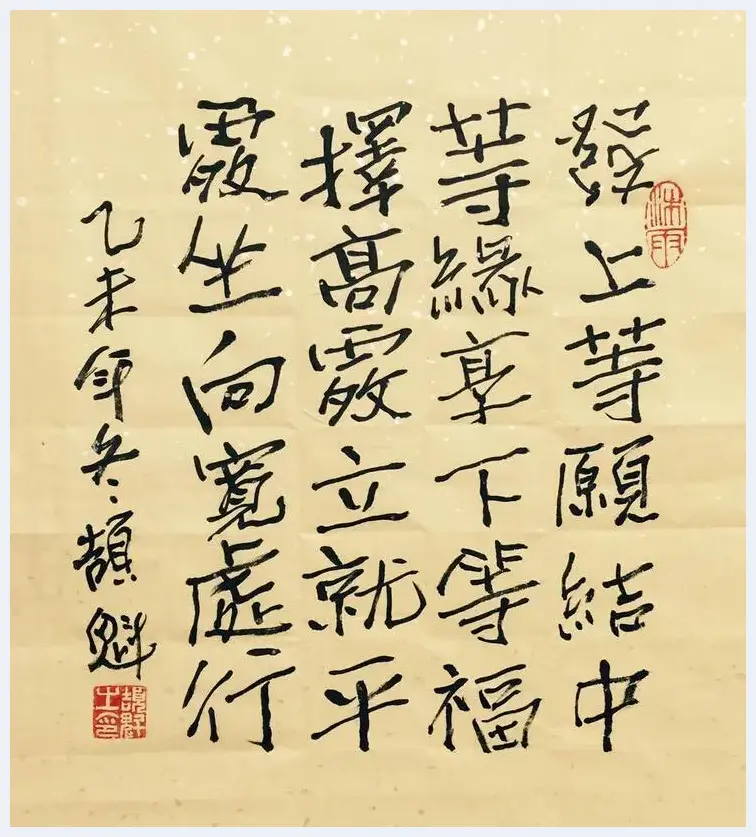 發上等願結中
等緣享下等福
擇高處立就平
處坐向寬處行
乙未年冬頡魁
沐雨